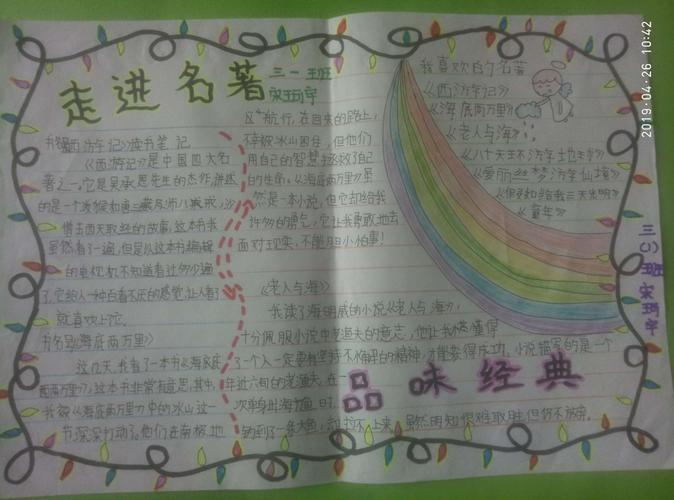 走进名著
三一班
宋琦宇
书名《西游记》读书笔记
《西游记》是中国四大名
著之一,它是吴承恩先生的杰作,讲述
的是一个孙猴和唐三藏及师八戒,沙
僧去西天取经的故事,这本书我
虽然看了一遍,但是从这本书编辑
的电视机不知道看过多少遍
了,它给人一种百看不厌的感觉,让人看了
就喜欢上它.
书名《海底两万里》
这几天,我看了一本书《海底
两万里》,这本书非常有意思,其中,
我被《海底两万里》中的冰山这一
节深深打动了.他们在南极地
区航行,在回来的路上,
不幸被冰山困住,但他们
用自己的智慧拯救了自己
的生命.《海底两万里》虽
然是一本小说,但它却给我
许多的勇气,它让我勇敢地去
面对现实,不能胆小怕事!
《老人与海》
我读了海明威的小说《老人与海》,
十分佩服小说中老渔夫的意志,他让我懂得
了一个人一定要有坚持不懈的精神,才能获得成功.小说描写的是一个
年近六旬的老渔夫,在一
次单身出海打鱼时,
钓到了一条大鱼,却拉不上来.虽然明知很难取胜,但仍不放弃.
我喜欢的名著
《西游记》
《海底两万里》
《老人与海》
《八十天环游地球》
《爱丽丝梦游仙境》
《假如给我三天光明》
《童年》
品味经典
三(1)班宋琦宇
2019·04·26 10:42